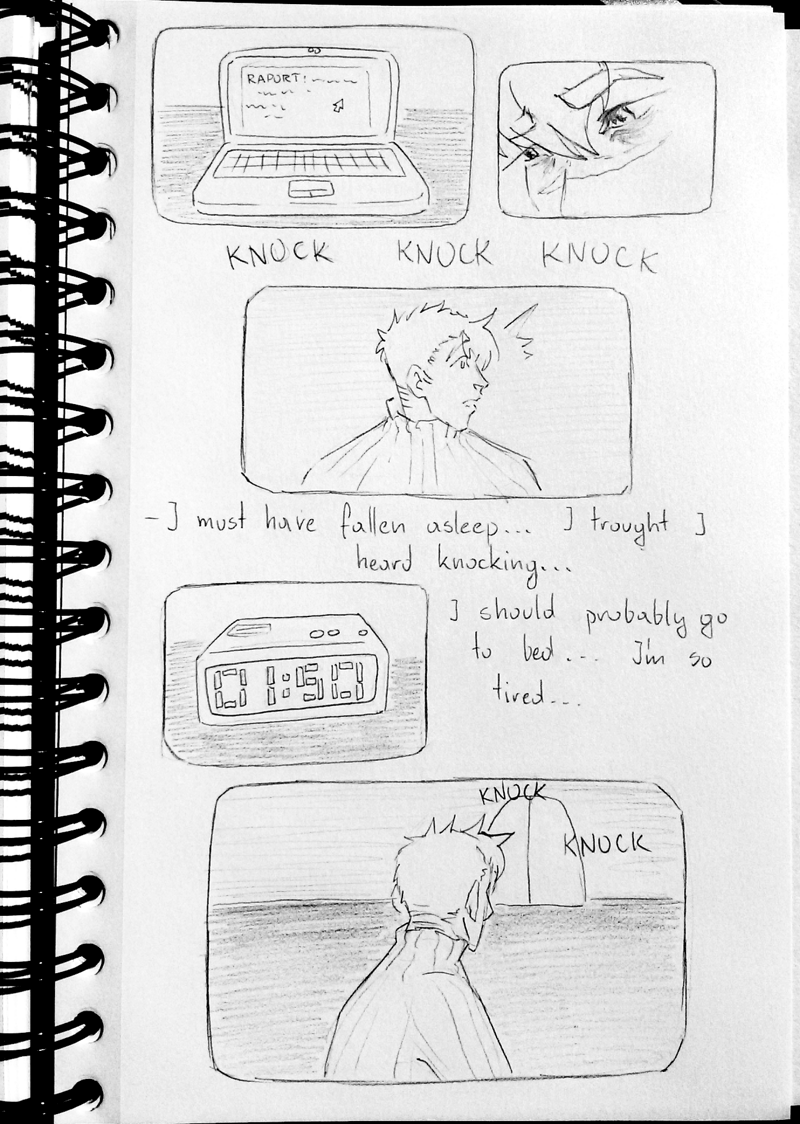 RAPORT:
KNOCK KNOCK KNOCK
- I must have fallen asleep... I trought I
heard knocking...
01:50
I should probably go
to bed... I'm so
tired...
KNOCK
KNOCK